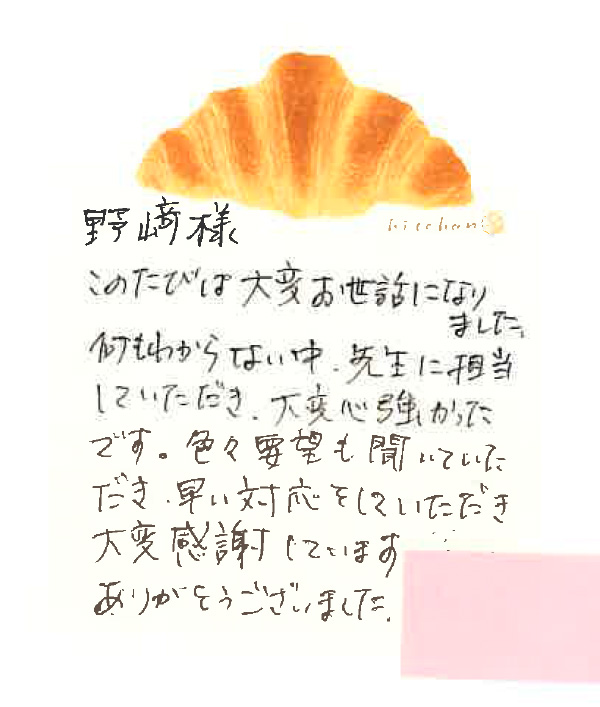 hicchan
野﨑様
このたびは大変お世話になり
ました。
何もわからない中、先生に担当
していただき、大変心強かった
です。色々要望も聞いていた
だき、早い対応をしていただき
大変感謝しています
ありがとうございました。